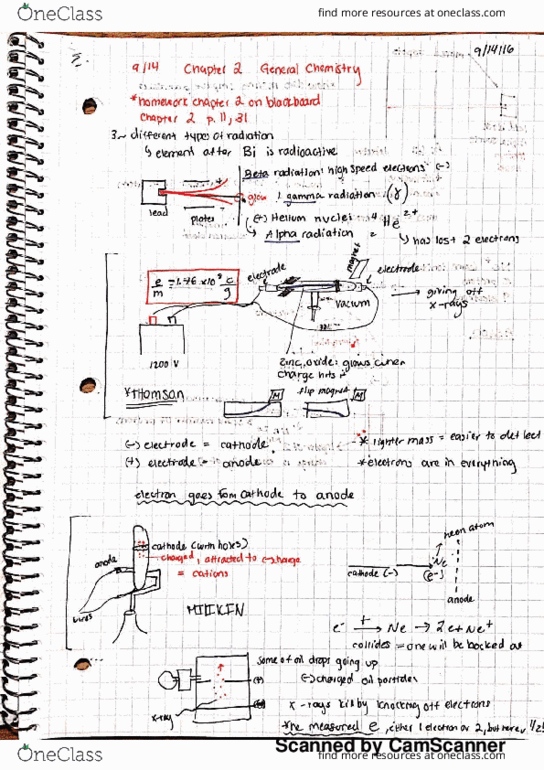 OneClass
find more resources at oneclass.com
9/14/16
9/14 Chapter 2 General Chemistry
*homework chapter 2 on blackboard
Chapter 2 p. 11, 31
3 different types of radiation
↳ element after Bi is radioactive
Beta radiation: high speed electrons (-)
glow
gamma radiation (γ)
lead
plates
(+) Helium nuclei = ⁴He²⁺
↳ Alpha radiation
↳ has lost 2 electrons
e/m = 1.76 x10⁸ c/g
electrode
magnet
electrode
vacuum
→ giving off x-rays
1200 V
zinc oxide: glows when
charge hits it
*THOMSON
flip magnet
M
M
(-) electrode = cathode
* lighter mass = easier to detect
(+) electrode = anode
*electrons are in everything
electron goes from cathode to anode
cathode (with holes)
charged, attracted to (-) charge
= cations
anode
wires
neon atom
Ne
cathode (-)
(e-)
anode
e⁻ → Ne → 2e + Ne⁺
collides = one will be
some of oil drops going up
(+)
(-) charged oil particles
x-rays by knocking off electrons
x-ray
*he measured e, either 1 electron or 2, but never 1/2
Scanned by CamScanner
OneClass
find more resources at oneclass.com